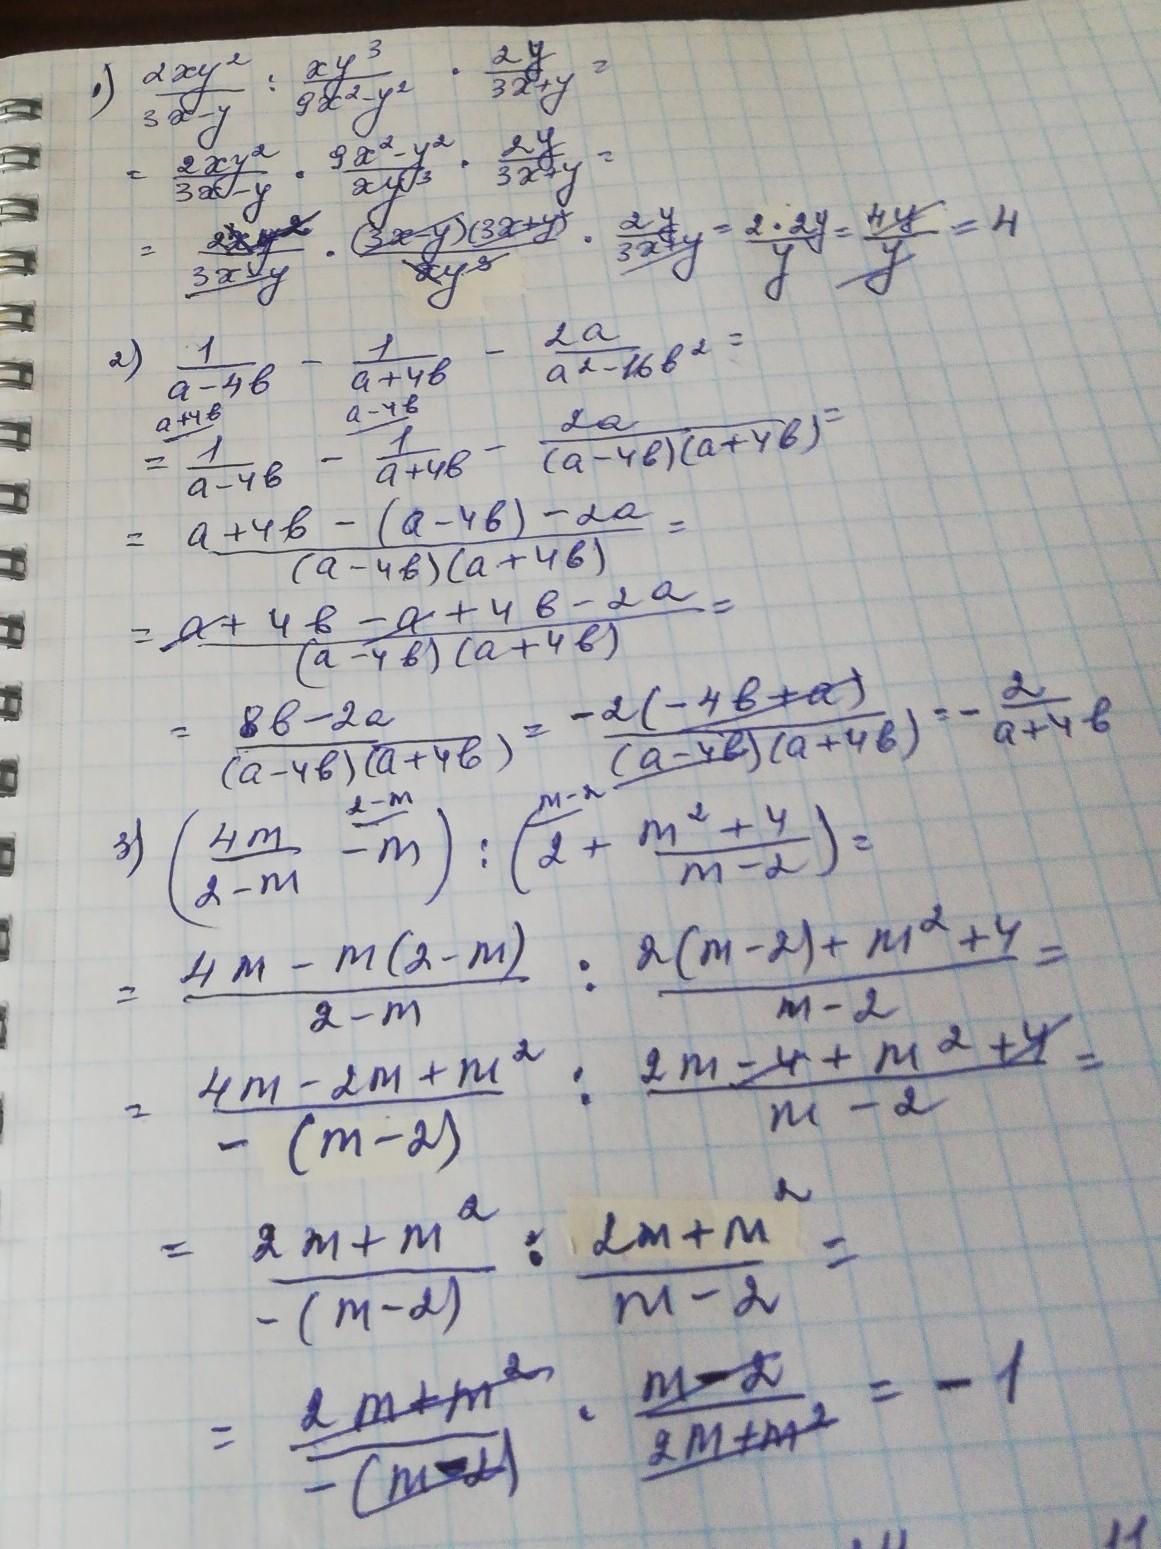 1) 2xy²/(3x-y) : xy³/(9x²-y²) · 2y/(3x+y) =
= 2xy²/(3x-y) · (9x²-y²)/(xy³) · 2y/(3x+y) =
= 2xy²/(3x-y) · (3x-y)(3x+y)/(xy³) · 2y/(3x+y) = 2·2y/y = 4y/y = 4
2) 1/(a-4в) - 1/(a+4в) - 2a/(a²-16в²) =
a+4в a-4в
= 1/(a-4в) - 1/(a+4в) - 2a/((a-4в)(a+4в)) =
= (a+4в-(a-4в)-2a)/((a-4в)(a+4в)) =
= (a+4в-a+4в-2a)/((a-4в)(a+4в)) =
= (8в-2a)/((a-4в)(a+4в)) = -2(-4в+a)/((a-4в)(a+4в)) = -2/(a+4в)
2-m m-2
3) (4m/(2-m) -m) : (2 + (m²+4)/(m-2)) =
= (4m-m(2-m))/(2-m) : (2(m-2)+m²+4)/(m-2) =
= (4m-2m+m²)/(-(m-2)) : (2m-4+m²+4)/(m-2) =
= (2m+m²)/(-(m-2)) : (2m+m²)/(m-2) =
= (2m+m²)/(-(m-2)) · (m-2)/(2m+m²) = -1